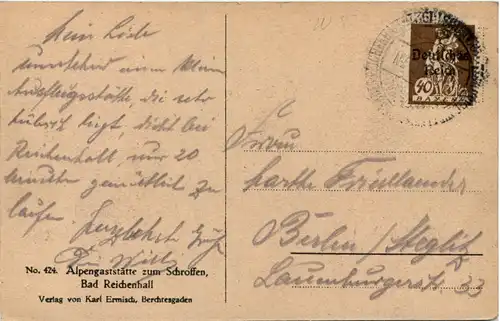 Mein Liebe
umstehend eine kleine
Ausflugsstätte, die sehr
hübsch liegt, dicht bei
Reichenhall, nur 20
minuten gemütlich zu
laufen. Herzlichste Grüße
No. 424. Alpengaststätte zum Schroffen,
Bad Reichenhall
Verlag von Karl Ermisch, Berchtesgaden
Deutsches
Reich
40
BAYERN
Friedlaender
Berlin / Steglitz
Lauenburgerstr. 33